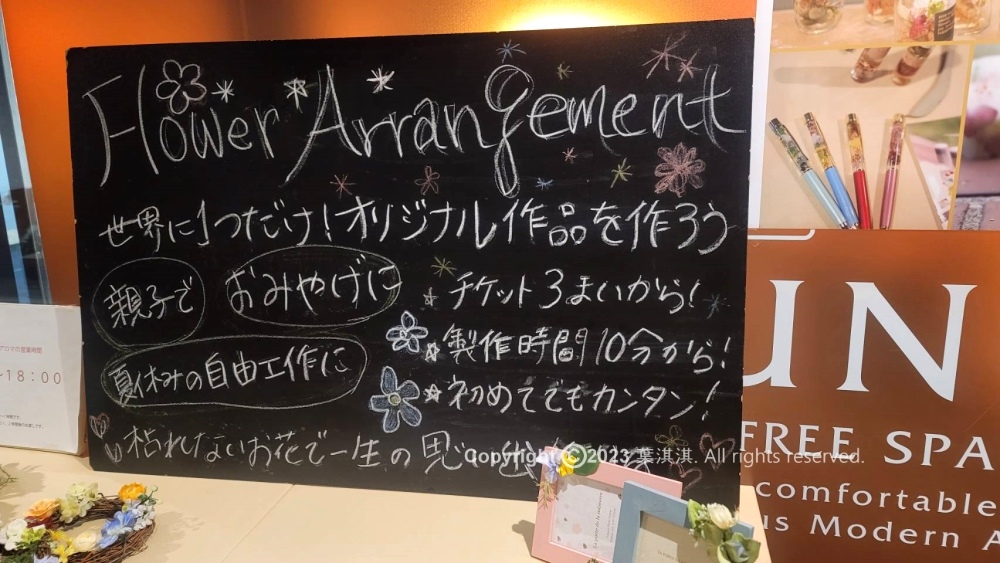 Flower Arrangement
世界に1つだけ!オリジナル作品を作ろう
親子で
おみやげに
夏休みの自由工作に
チケット3まいから!
製作時間10分から!
初めてでもカンタン!
枯れないお花で一生の思い
Copyright © 2023 葉淇淇. All rights reserved.
18:00
UN
FREE SPA
comfortable
us Modern A